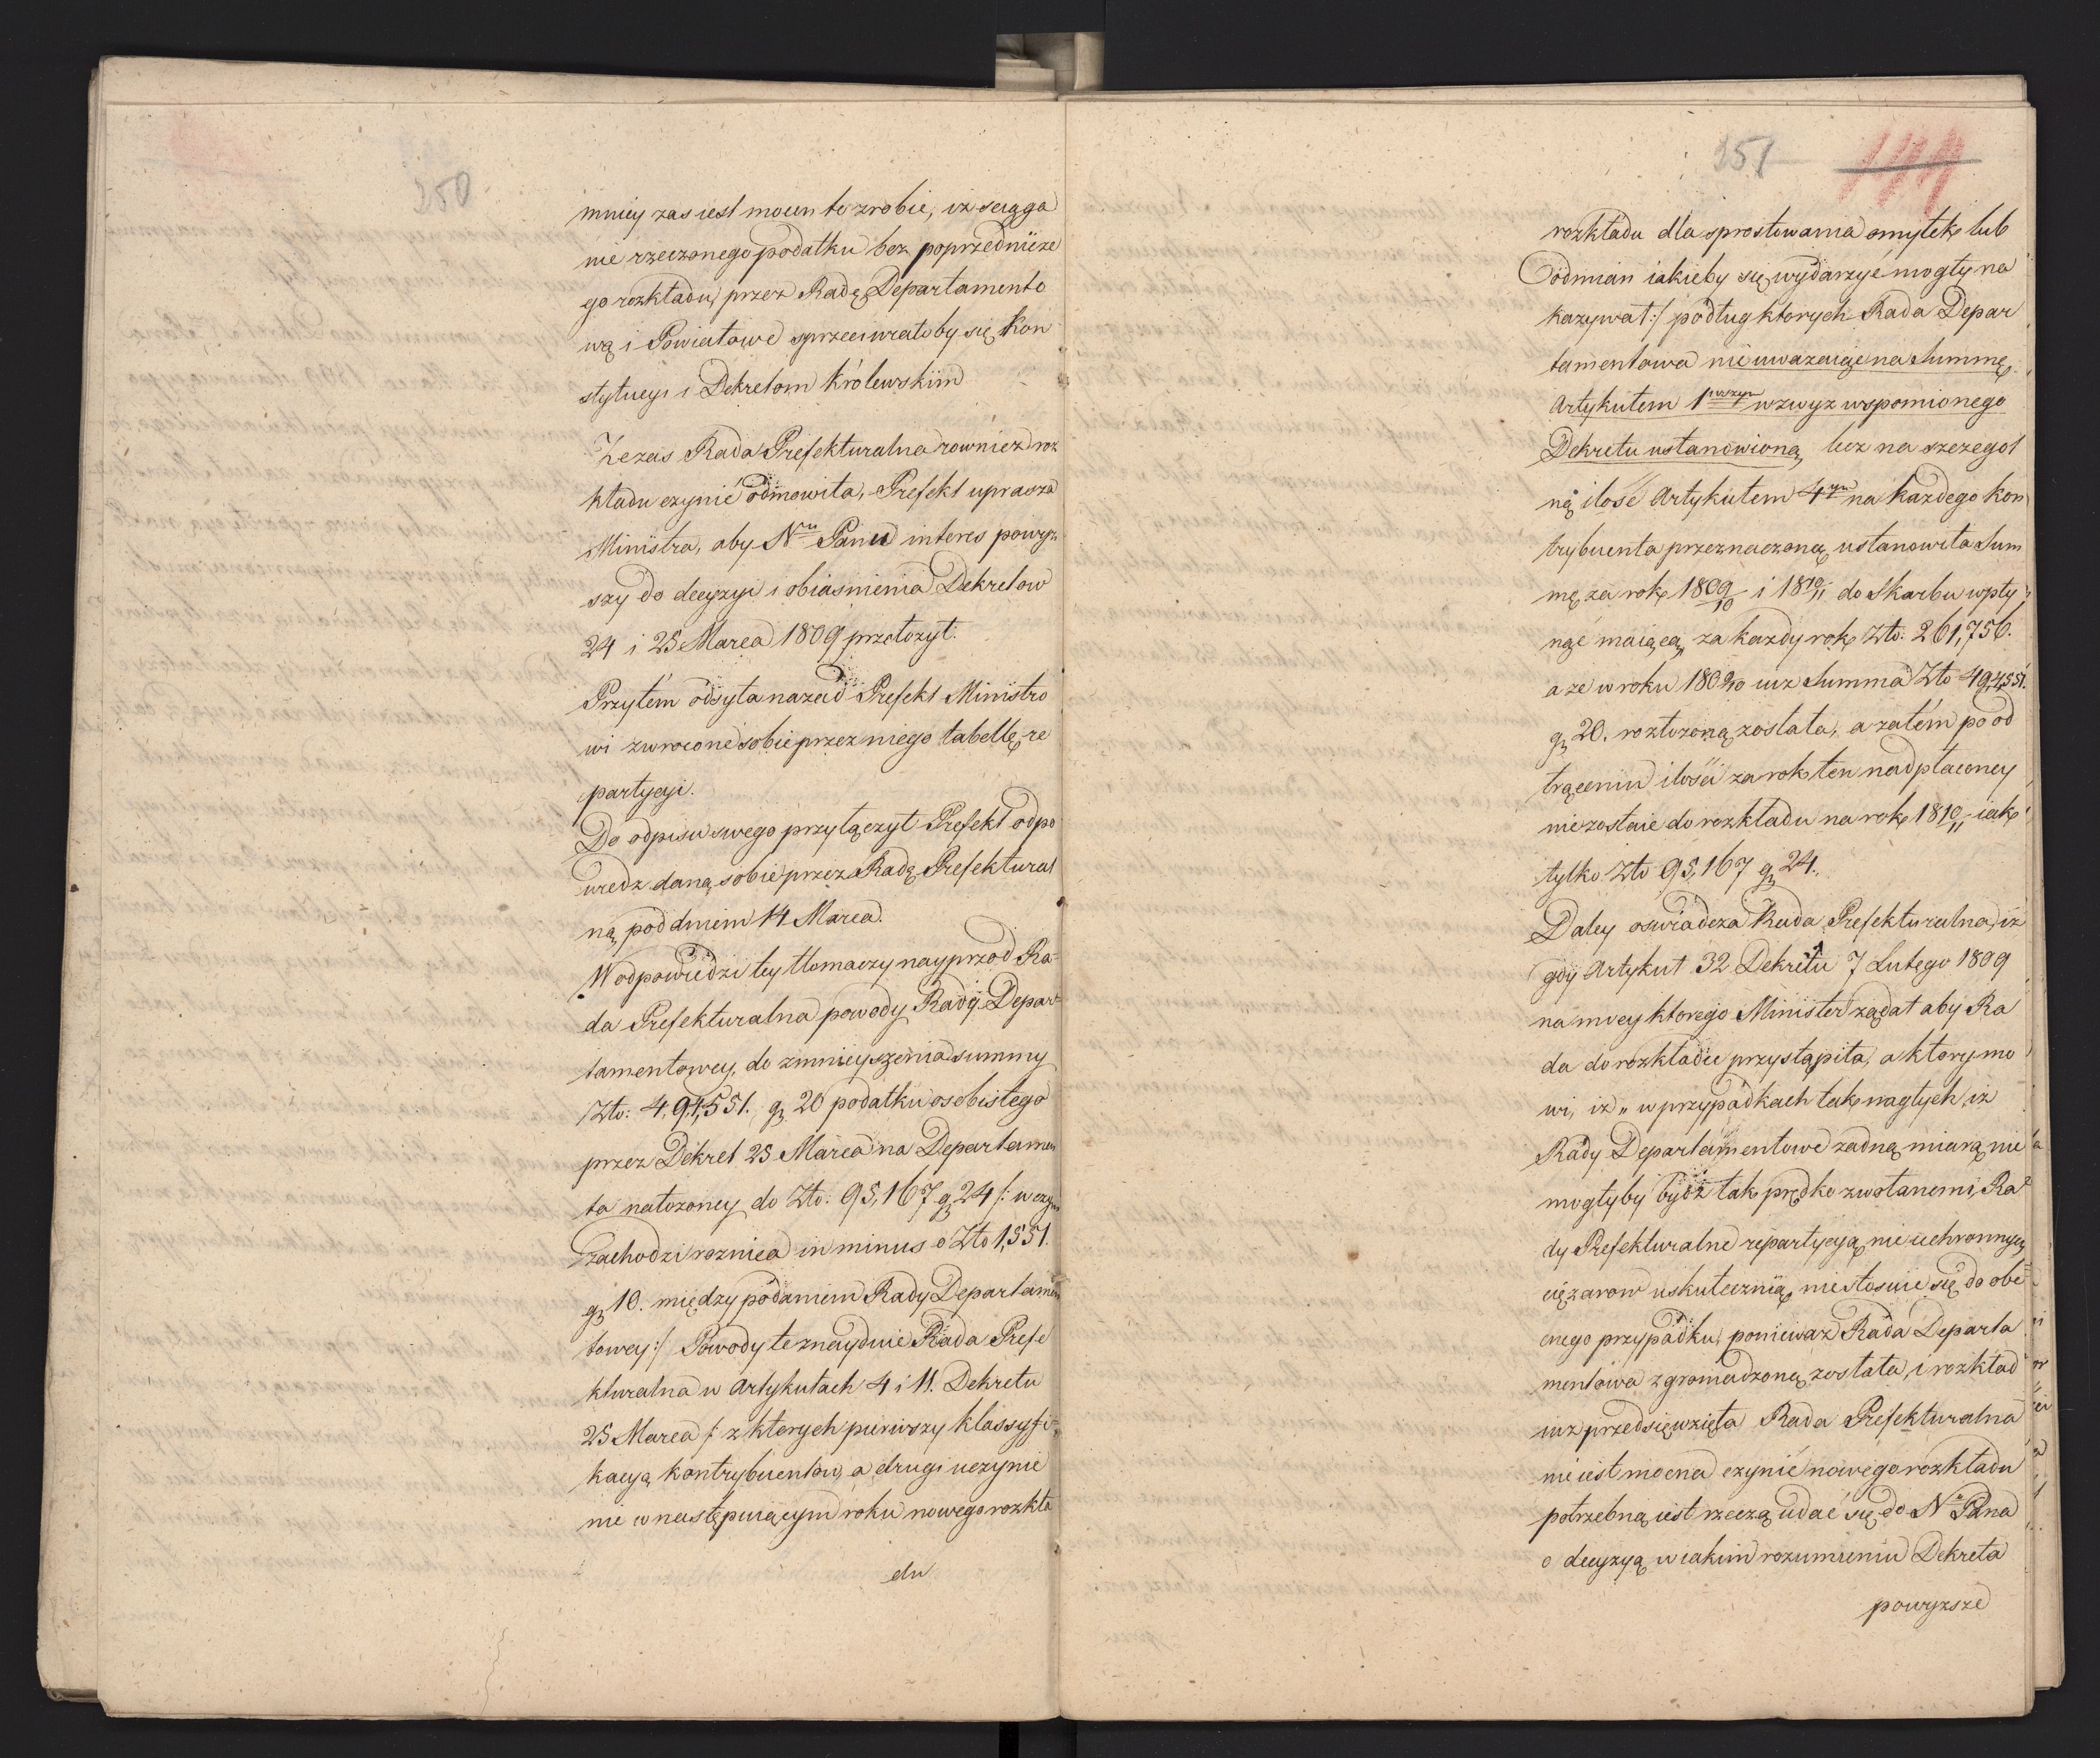 250
mniey zas iest mocen to zrobic, iz sciąga
nie rzeczonego podatku bez poprzedniize
go rozkładu przez Radę Departamento
wą i Powiatowe sprzeciwiałoby się Kon
stytucyi i Dekretom Królewskim
Że zas Rada Prefekturalna rowniez roz
kładu czynić odmowiła, Prefekt uprasza
Ministra, aby Nu Panu interes powyz
szy do decyzyi i obiasnienia Dekretow
24 i 25 Marca 1809 przełozył.
Przytém odsyła nazad Prefekt Ministro
wi zwrocone sobie przez niego tabellę re
partycyi.
Do odpisu swego przyłączył Prefekt odpo
wiedz daną sobie przez Radę Prefektural
ną pod dniem 14 Marca.
W odpowiedzi tey tłomaczy nayprzod Ra-
da Prefekturalna powody Rady Depar-
tamentowey, do zmnieyszenia summy
Zło: 4,94,551. gr 20 podatku osobistego
przez Dekret 25 Marca na Departamen
ta nałozoney do Zło: 95,167 gr 24 /: w czym
zachodzi roznica in minus o Zło 1,551.
gr 10. między podaniem Rady Departamen
towey :/ Powody te znayduie Rada Prefe
kturalna w Artykułach 4 i 11. Dekretu
25 Marca /: z ktorych pierwszy klassyfi-
kacyą kontrybuentow, a drugi uczynie
nie w następuiącym roku nowego rozkła
du
251
rozkładu dla sprostowania omyłek lub
Odmian iakieby się wydarzyć mogły na
kazywał :/ podług ktorych Rada Depar
tamentowa nie uwazaiąc na Summę
Artykułem 1wszym wzwyz wspomionego
Dekretu ustanowioną, lecz na szczegol
ną ilosc Artykułem 4ym na kazdego kon
trybuenta przeznaczoną, ustanowiła Sum
mę za rok 1809/10 i 1810/11 do Skarbu wpły
nąć maiącą, za kazdy rok Zło: 261,756.
a ze w roku 1809/10 iuz Summa Zło 494,551.
gr 20. rozłozoną została, a zatém po od
trąceniu ilości za rok ten nadpłaconey
nie zostaie do rozkładu na rok 1810/11 iak
tylko Zło 95,167 gr 24.
Daley oswiadcza Rada Prefekturalna, iz
gdy Artykuł 32 Dekretu 7 Lutego 1809
na mocy ktorego Minister ządał aby Ra
da do rozkładu przystąpiła, a ktory mo
wi, iz „ w przypadkach tak nagłych, iz
Rady Departamentowe zadną miarą nie
mogłyby bydź tak prędko zwołanemi, Ra-
dy Prefekturalne repartycyą nieuchronnych
cięzarow uskutecznią, nie stosuie się do obe
cnego przypadku, poniewaz Rada Departa
mentowa zgromadzoną została, i rozkład
iuz przedsięwzięła Rada Prefekturalna
nie iest mocna czynić nowego rozkładu
potrzebną iest rzeczą udać się do No Pana
o decyzyą w iakim rozumieniu Dekreta
powyzsze